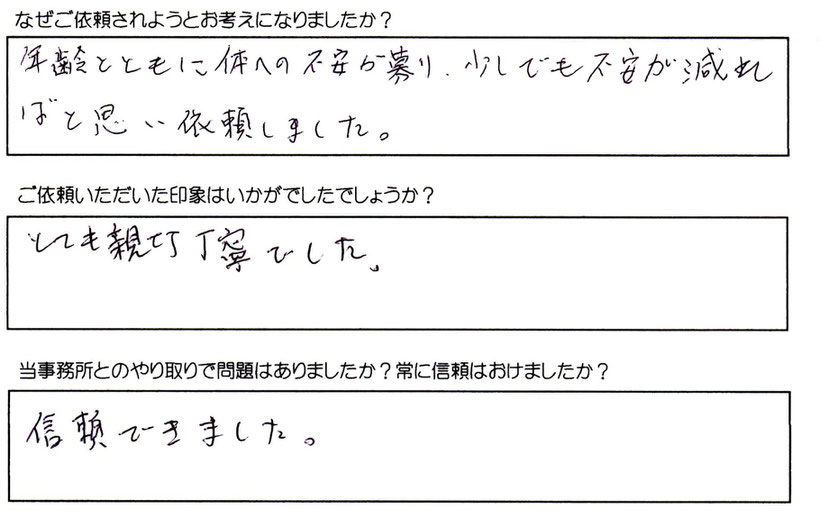 なぜご依頼されようとお考えになりましたか？
年齢とともに体への不安が募り、少しでも不安が減れ
ばと思い依頼しました。
ご依頼いただいた印象はいかがでしたでしょうか？
とても親切丁寧でした。
当事務所とのやり取りで問題はありましたか？常に信頼はおけましたか？
信頼できました。